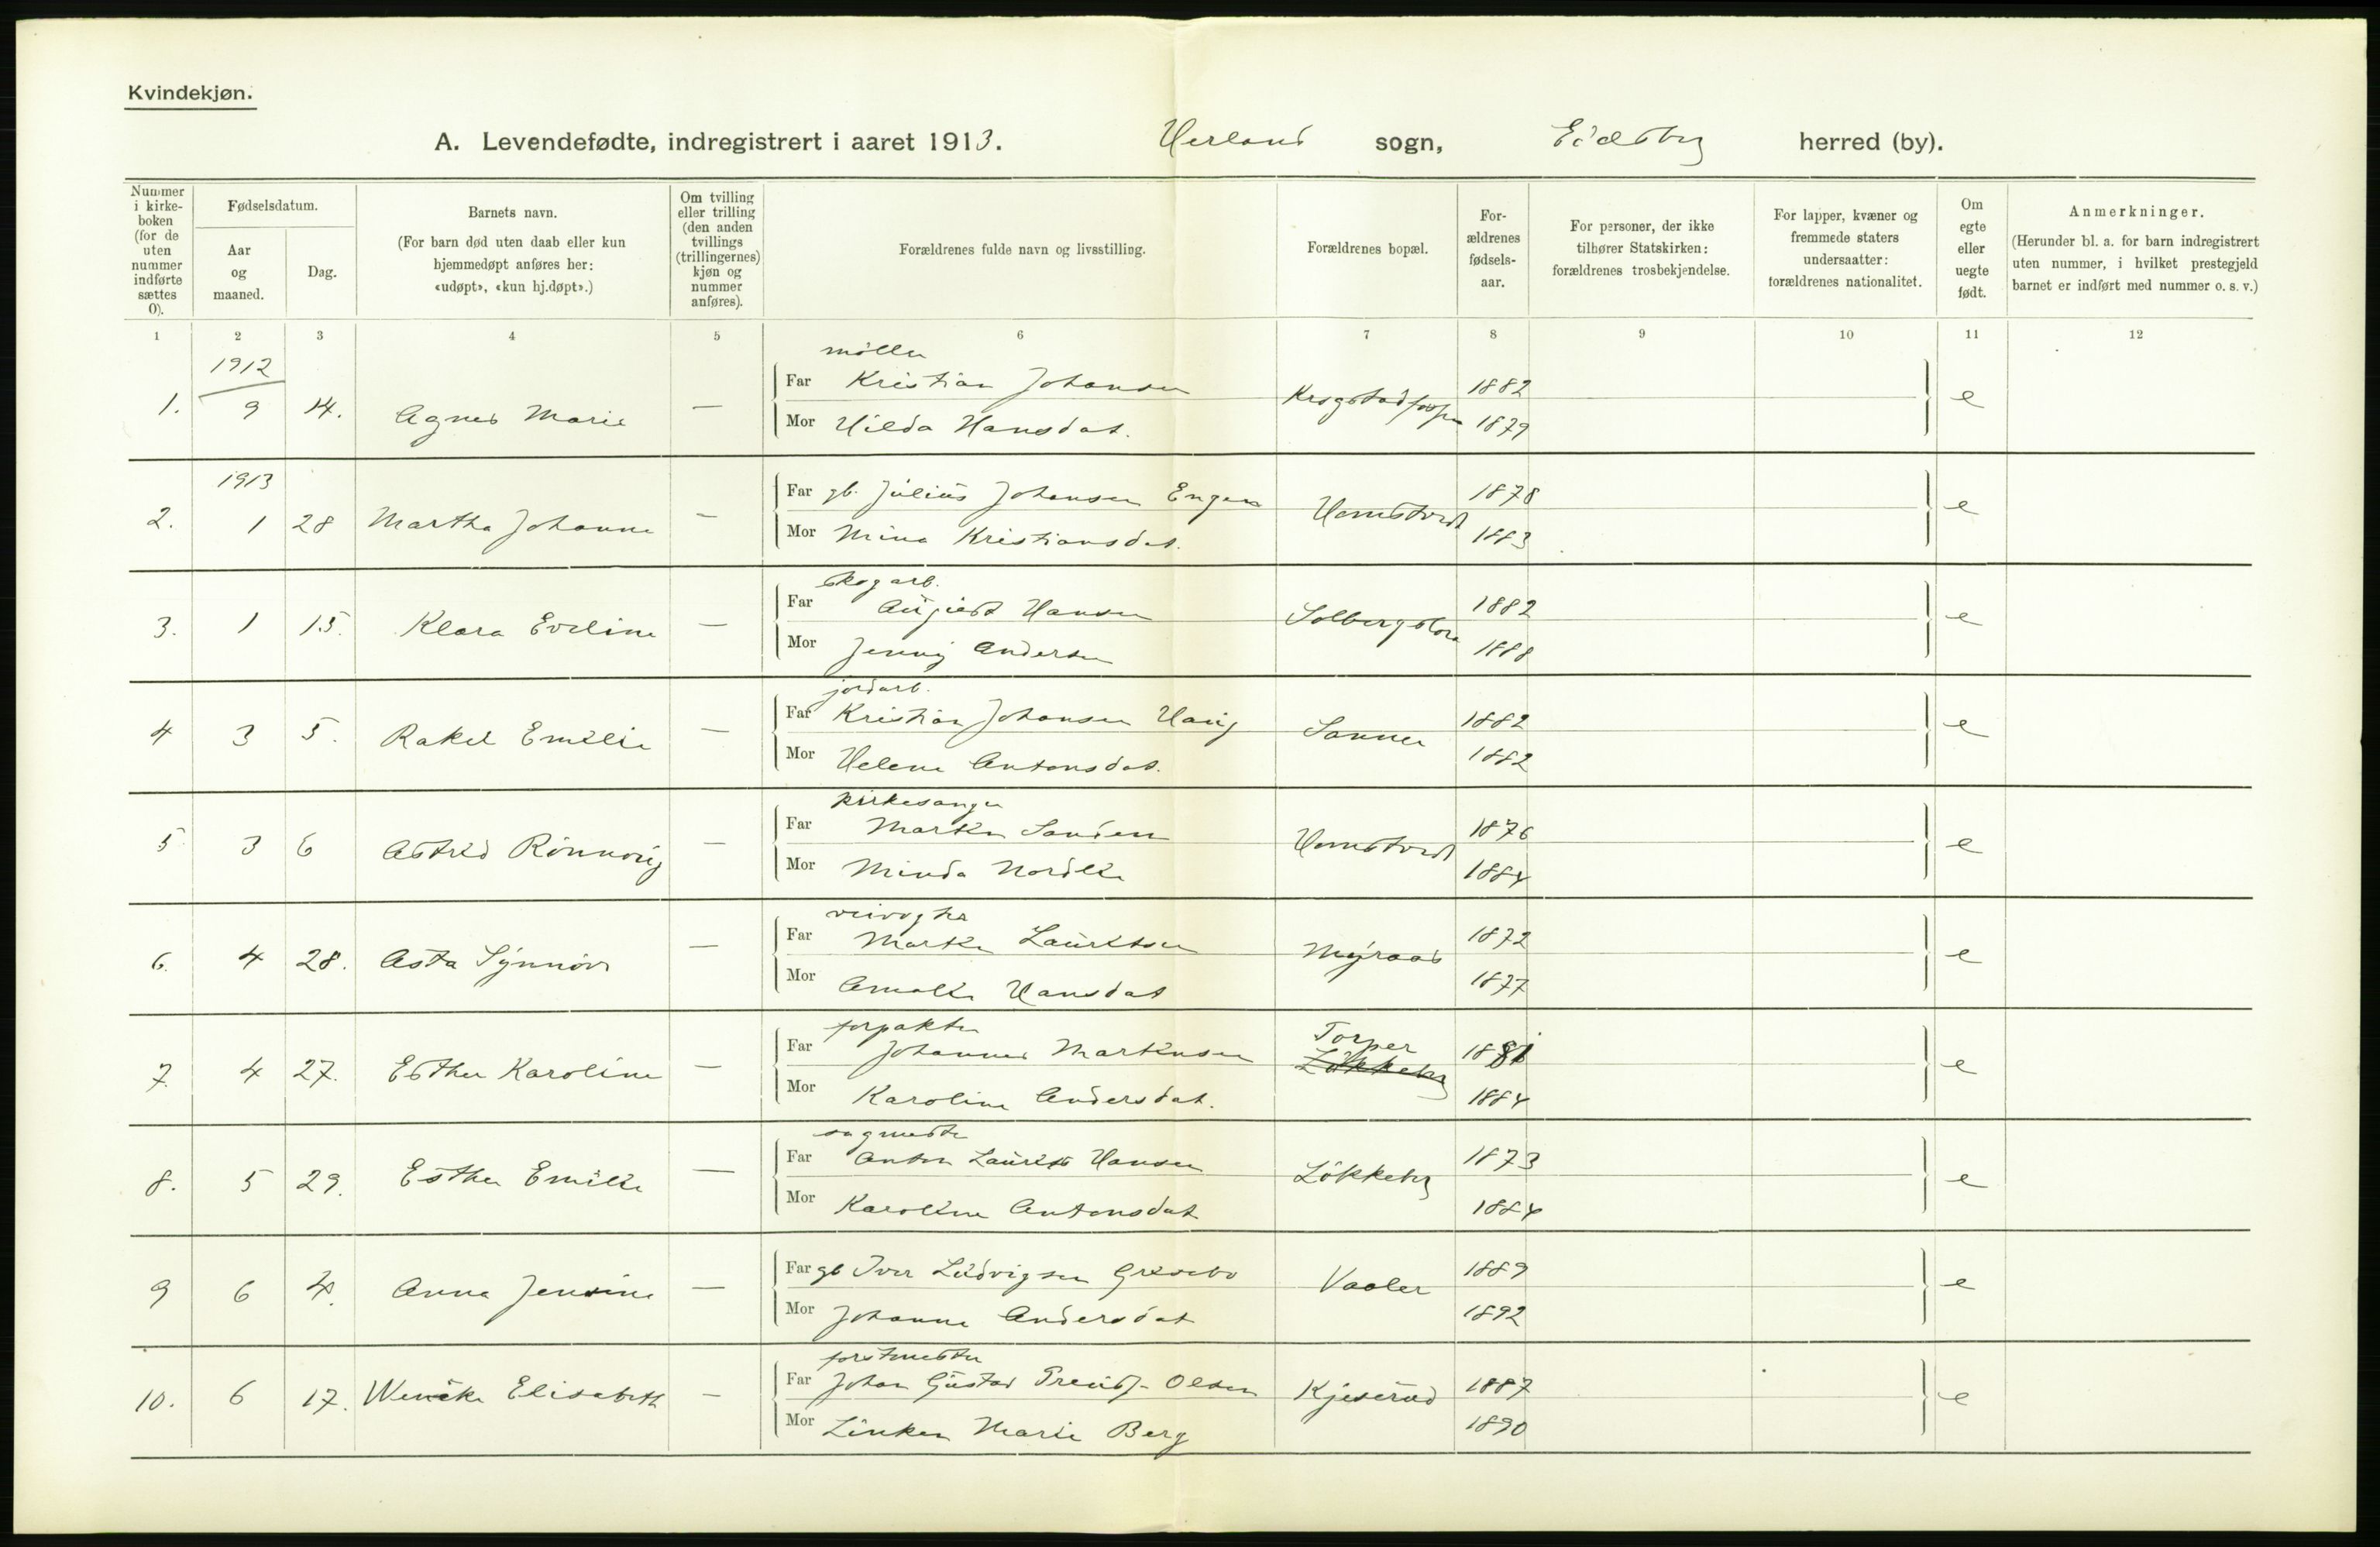 Kvindekjøn.
A. Levendefødte, indregistrert i aaret 1913. Herland sogn, Eidsbg herred (by).
Nummer i kirke-boken (for de uten nummer indførte sættes 0).
Fødselsdatum.
Aar og maaned.
Dag.
Barnets navn.
(For barn død uten daab eller kun hjemmedøpt anføres her: «udøpt», «kun hj.døpt».)
Om tvilling eller trilling (den anden tvillings (trillingernes) kjøn og nummer anføres).
Forældrenes fulde navn og livsstilling.
Forældrenes bopæl.
For-ældrenes fødsels-aar.
For personer, der ikke tilhører Statskirken: forældrenes trosbekjendelse.
For lapper, kvæner og fremmede staters undersaatter: forældrenes nationalitet.
Om egte eller uegte født.
Anmerkninger.
(Herunder bl. a. for barn indregistrert uten nummer, i hvilket prestegjeld barnet er indført med nummer o. s. v.)
1 2 3 4 5 6 7 8 9 10 11 12
1912
møller
1. 9 14. Agnes Marie — Far Kristian Johansen Krogstadfossen 1882 e
Mor Hilda Hansdat. 1879
1913
2. 1 28 Martha Johanne — Far gb. Julius Johansen Engen Homstvedt 1878 e
Mor Mina Kristiansdat. 1883
skogarb.
3. 1 15. Klara Eveline — Far August Hansen Solbergslora 1882 e
Mor Jenny Andersen 1888
jordarb.
4 3 5. Rakel Emilie — Far Kristian Johansen Haug Sanner 1882 e
Mor Helene Antonsdat. 1882
kirkesanger
5 3 6 Astrid Rønnovig — Far Martin Sandem Homstvedt 1876 e
Mor Minda Nordlie 1884
veivogter
6. 4 28. Asta Synnøve — Far Martin Lauritsen Myraas 1872 e
Mor Amalie Hansdat 1877
forpakter
7. 4 27. Esther Karoline — Far Johannes Martinsen Torper Løkkebg 1881 e
Mor Karoline Andersdat. 1884
sagmester
8. 5 29. Esther Emilie — Far Anton Laurits Hansen Løkkebg 1873 e
Mor Karoline Antonsdat 1884
9 6 4. Anna Jensine — Far gb Iver Ludvigsen Gresebo Vaaler 1889 e
Mor Johanne Andersdat 1892
forstmester
10. 6 17. Wenche Elisabeth — Far Johan Gustav Olsen Kjeserud 1887 e
Mor Linken Marie Berg 1890